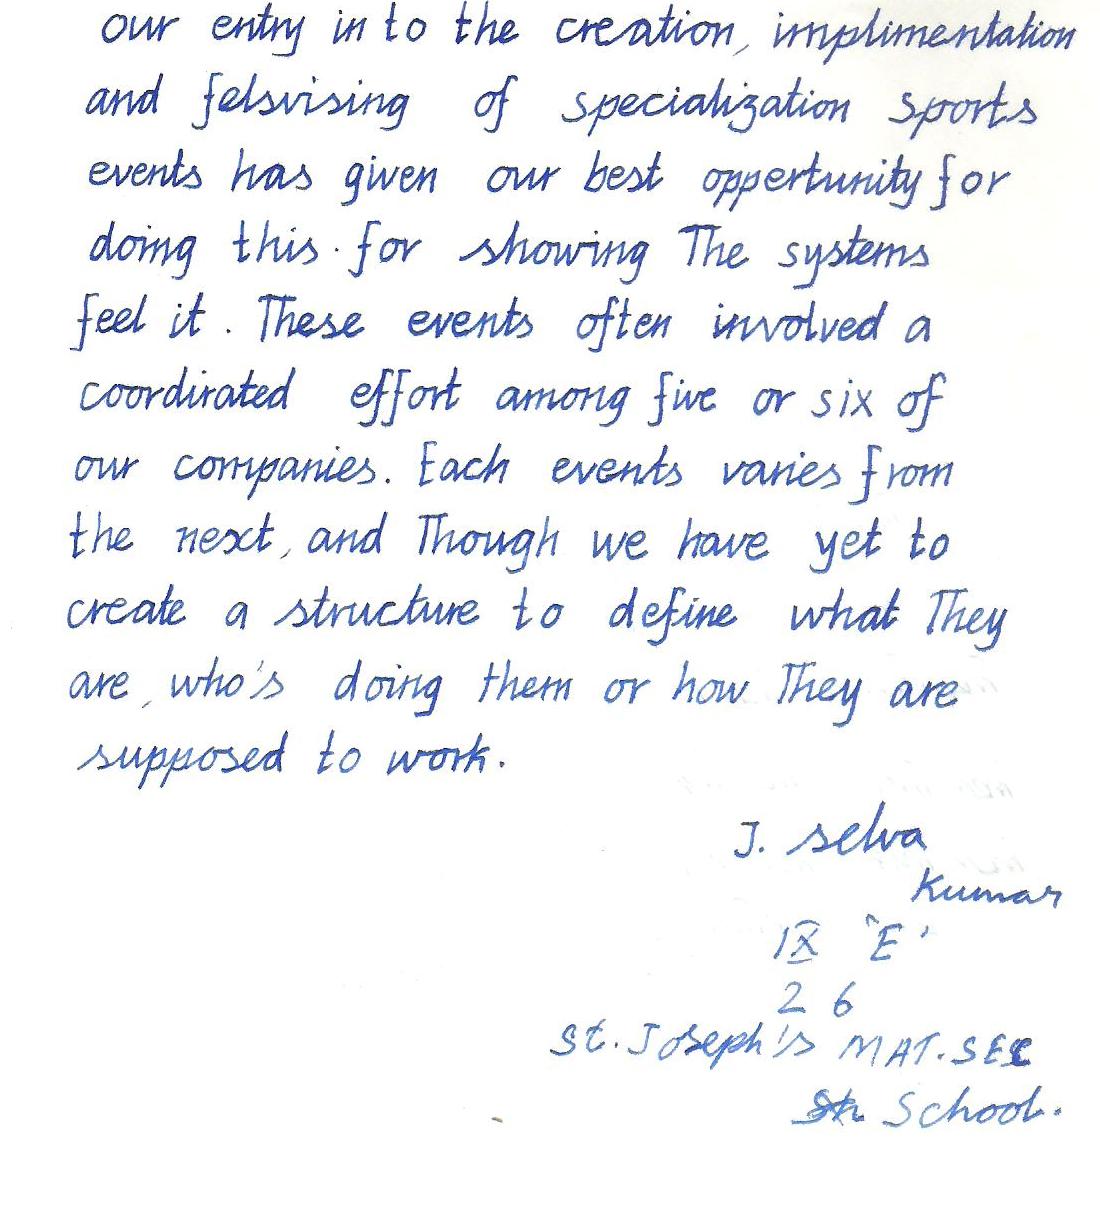 our entry in to the creation, implimentation
and felsvising of specialization sports
events has given our best oppertunity for
doing this. for showing The systems
feel it. These events often involved a
coordirated effort among five or six of
our companies. Each events varies from
the next, and Though we have yet to
create a structure to define what They
are, who's doing them or how They are
supposed to work.
J. selva
Kumar
IX 'E'
26
St. Joseph's MAT. SEC
School.